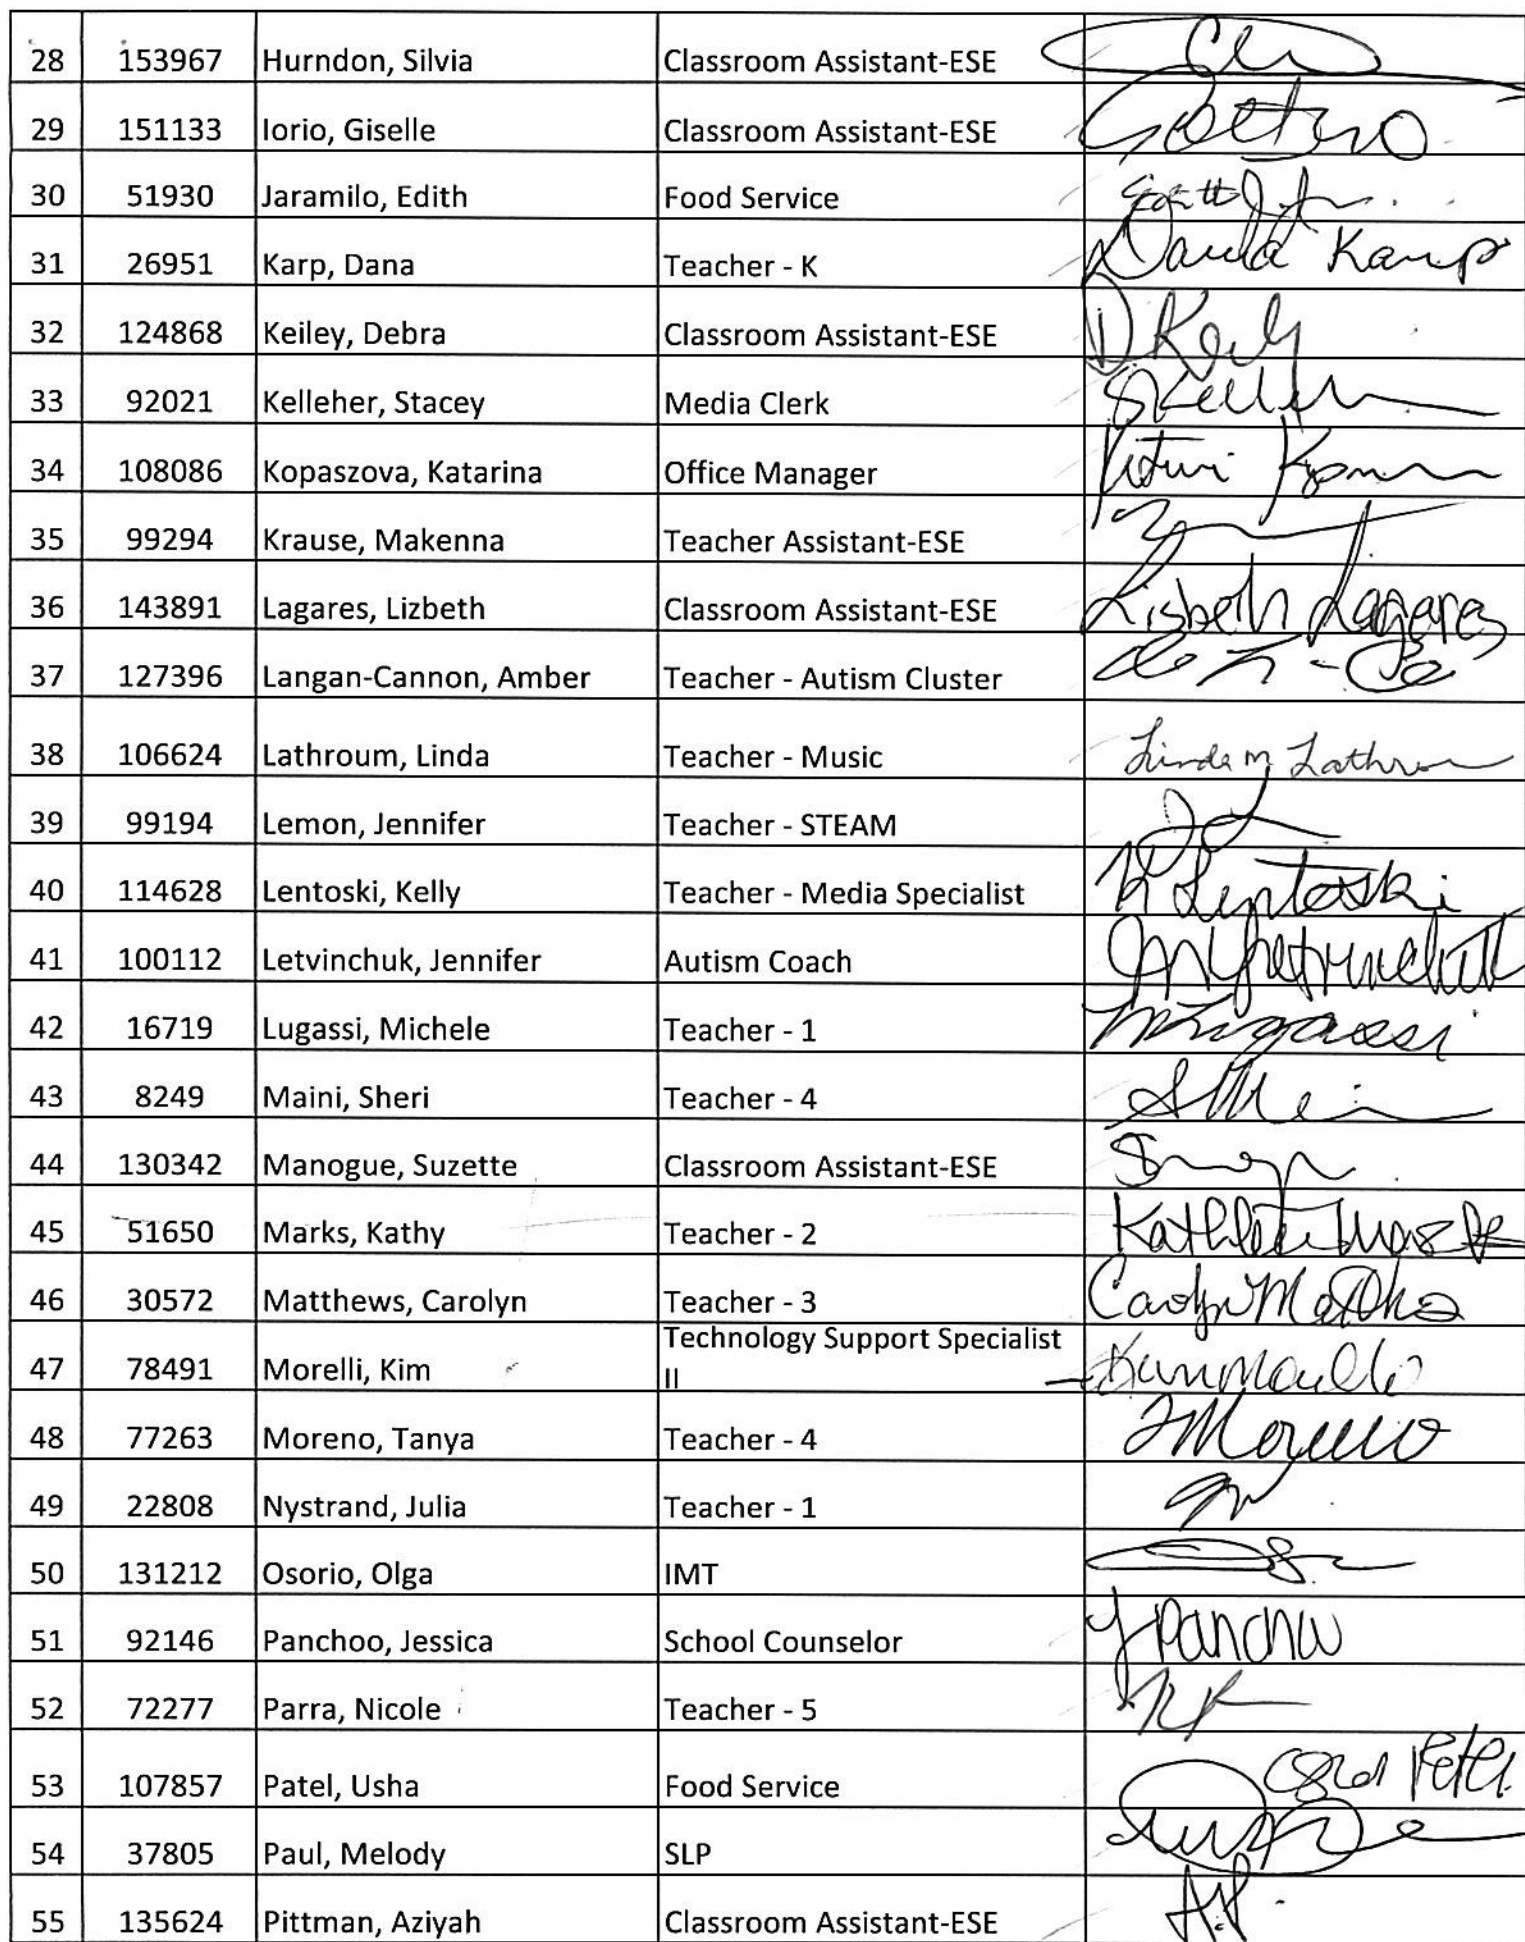 28 153967 Hurndon, Silvia Classroom Assistant-ESE
29 151133 Iorio, Giselle Classroom Assistant-ESE
30 51930 Jaramilo, Edith Food Service
31 26951 Karp, Dana Teacher - K Dana Karp
32 124868 Keiley, Debra Classroom Assistant-ESE
33 92021 Kelleher, Stacey Media Clerk
34 108086 Kopaszova, Katarina Office Manager
35 99294 Krause, Makenna Teacher Assistant-ESE
36 143891 Lagares, Lizbeth Classroom Assistant-ESE Lisbeth Lagares
37 127396 Langan-Cannon, Amber Teacher - Autism Cluster
38 106624 Lathroum, Linda Teacher - Music Linda M Lathrou
39 99194 Lemon, Jennifer Teacher - STEAM
40 114628 Lentoski, Kelly Teacher - Media Specialist K Lentoski
41 100112 Letvinchuk, Jennifer Autism Coach
42 16719 Lugassi, Michele Teacher - 1 M Lugassi
43 8249 Maini, Sheri Teacher - 4
44 130342 Manogue, Suzette Classroom Assistant-ESE
45 51650 Marks, Kathy Teacher - 2
46 30572 Matthews, Carolyn Teacher - 3
Technology Support Specialist
47 78491 Morelli, Kim II Kim Morelli
48 77263 Moreno, Tanya Teacher - 4 T Moreno
49 22808 Nystrand, Julia Teacher - 1
50 131212 Osorio, Olga IMT
51 92146 Panchoo, Jessica School Counselor J Panchoo
52 72277 Parra, Nicole Teacher - 5
53 107857 Patel, Usha Food Service
54 37805 Paul, Melody SLP
55 135624 Pittman, Aziyah Classroom Assistant-ESE A.P.